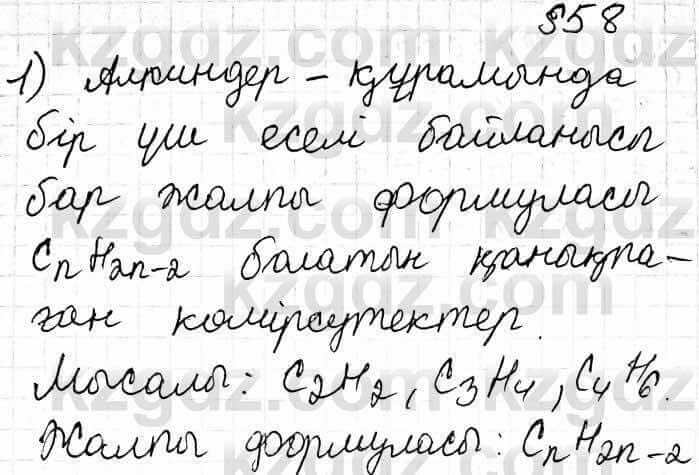 §58
1) Алкиндер – құрамында
бір үш еселі байланысы
бар жалпы формуласы
CnH2n-2 болатын қанықпа-
ған көмірсутектер.
Мысалы: C2H2, C3H4, C4H6.
Жалпы формуласы: CnH2n-2
kzgdz.com